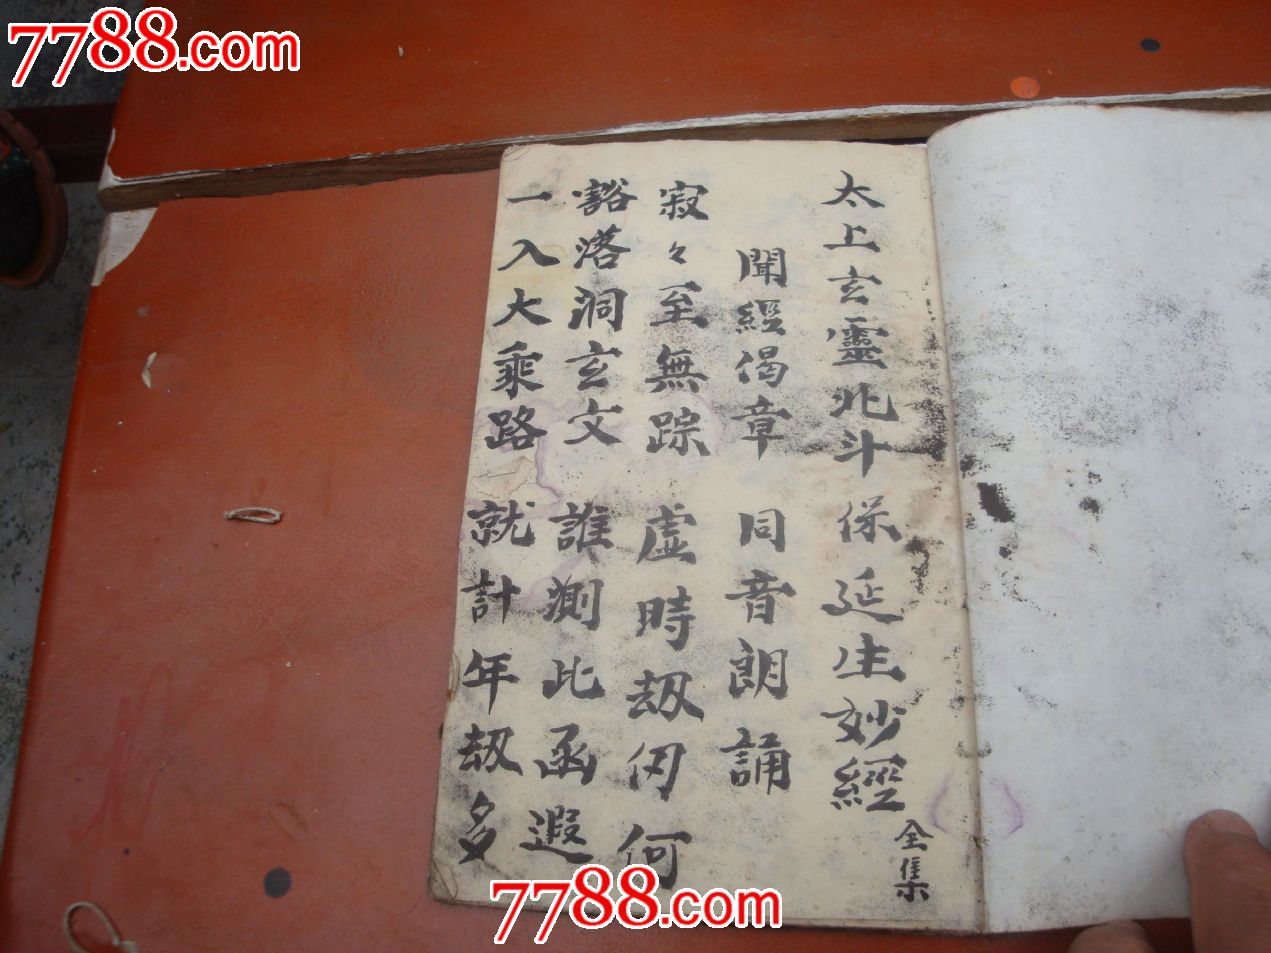 7788.com
太上玄靈北斗保延生妙經全集
聞經偈章同音朗誦
寂々至無踪虛時刼仞何
豁落洞玄文誰測此函遐
一入大乘路就計年刼多
7788.com